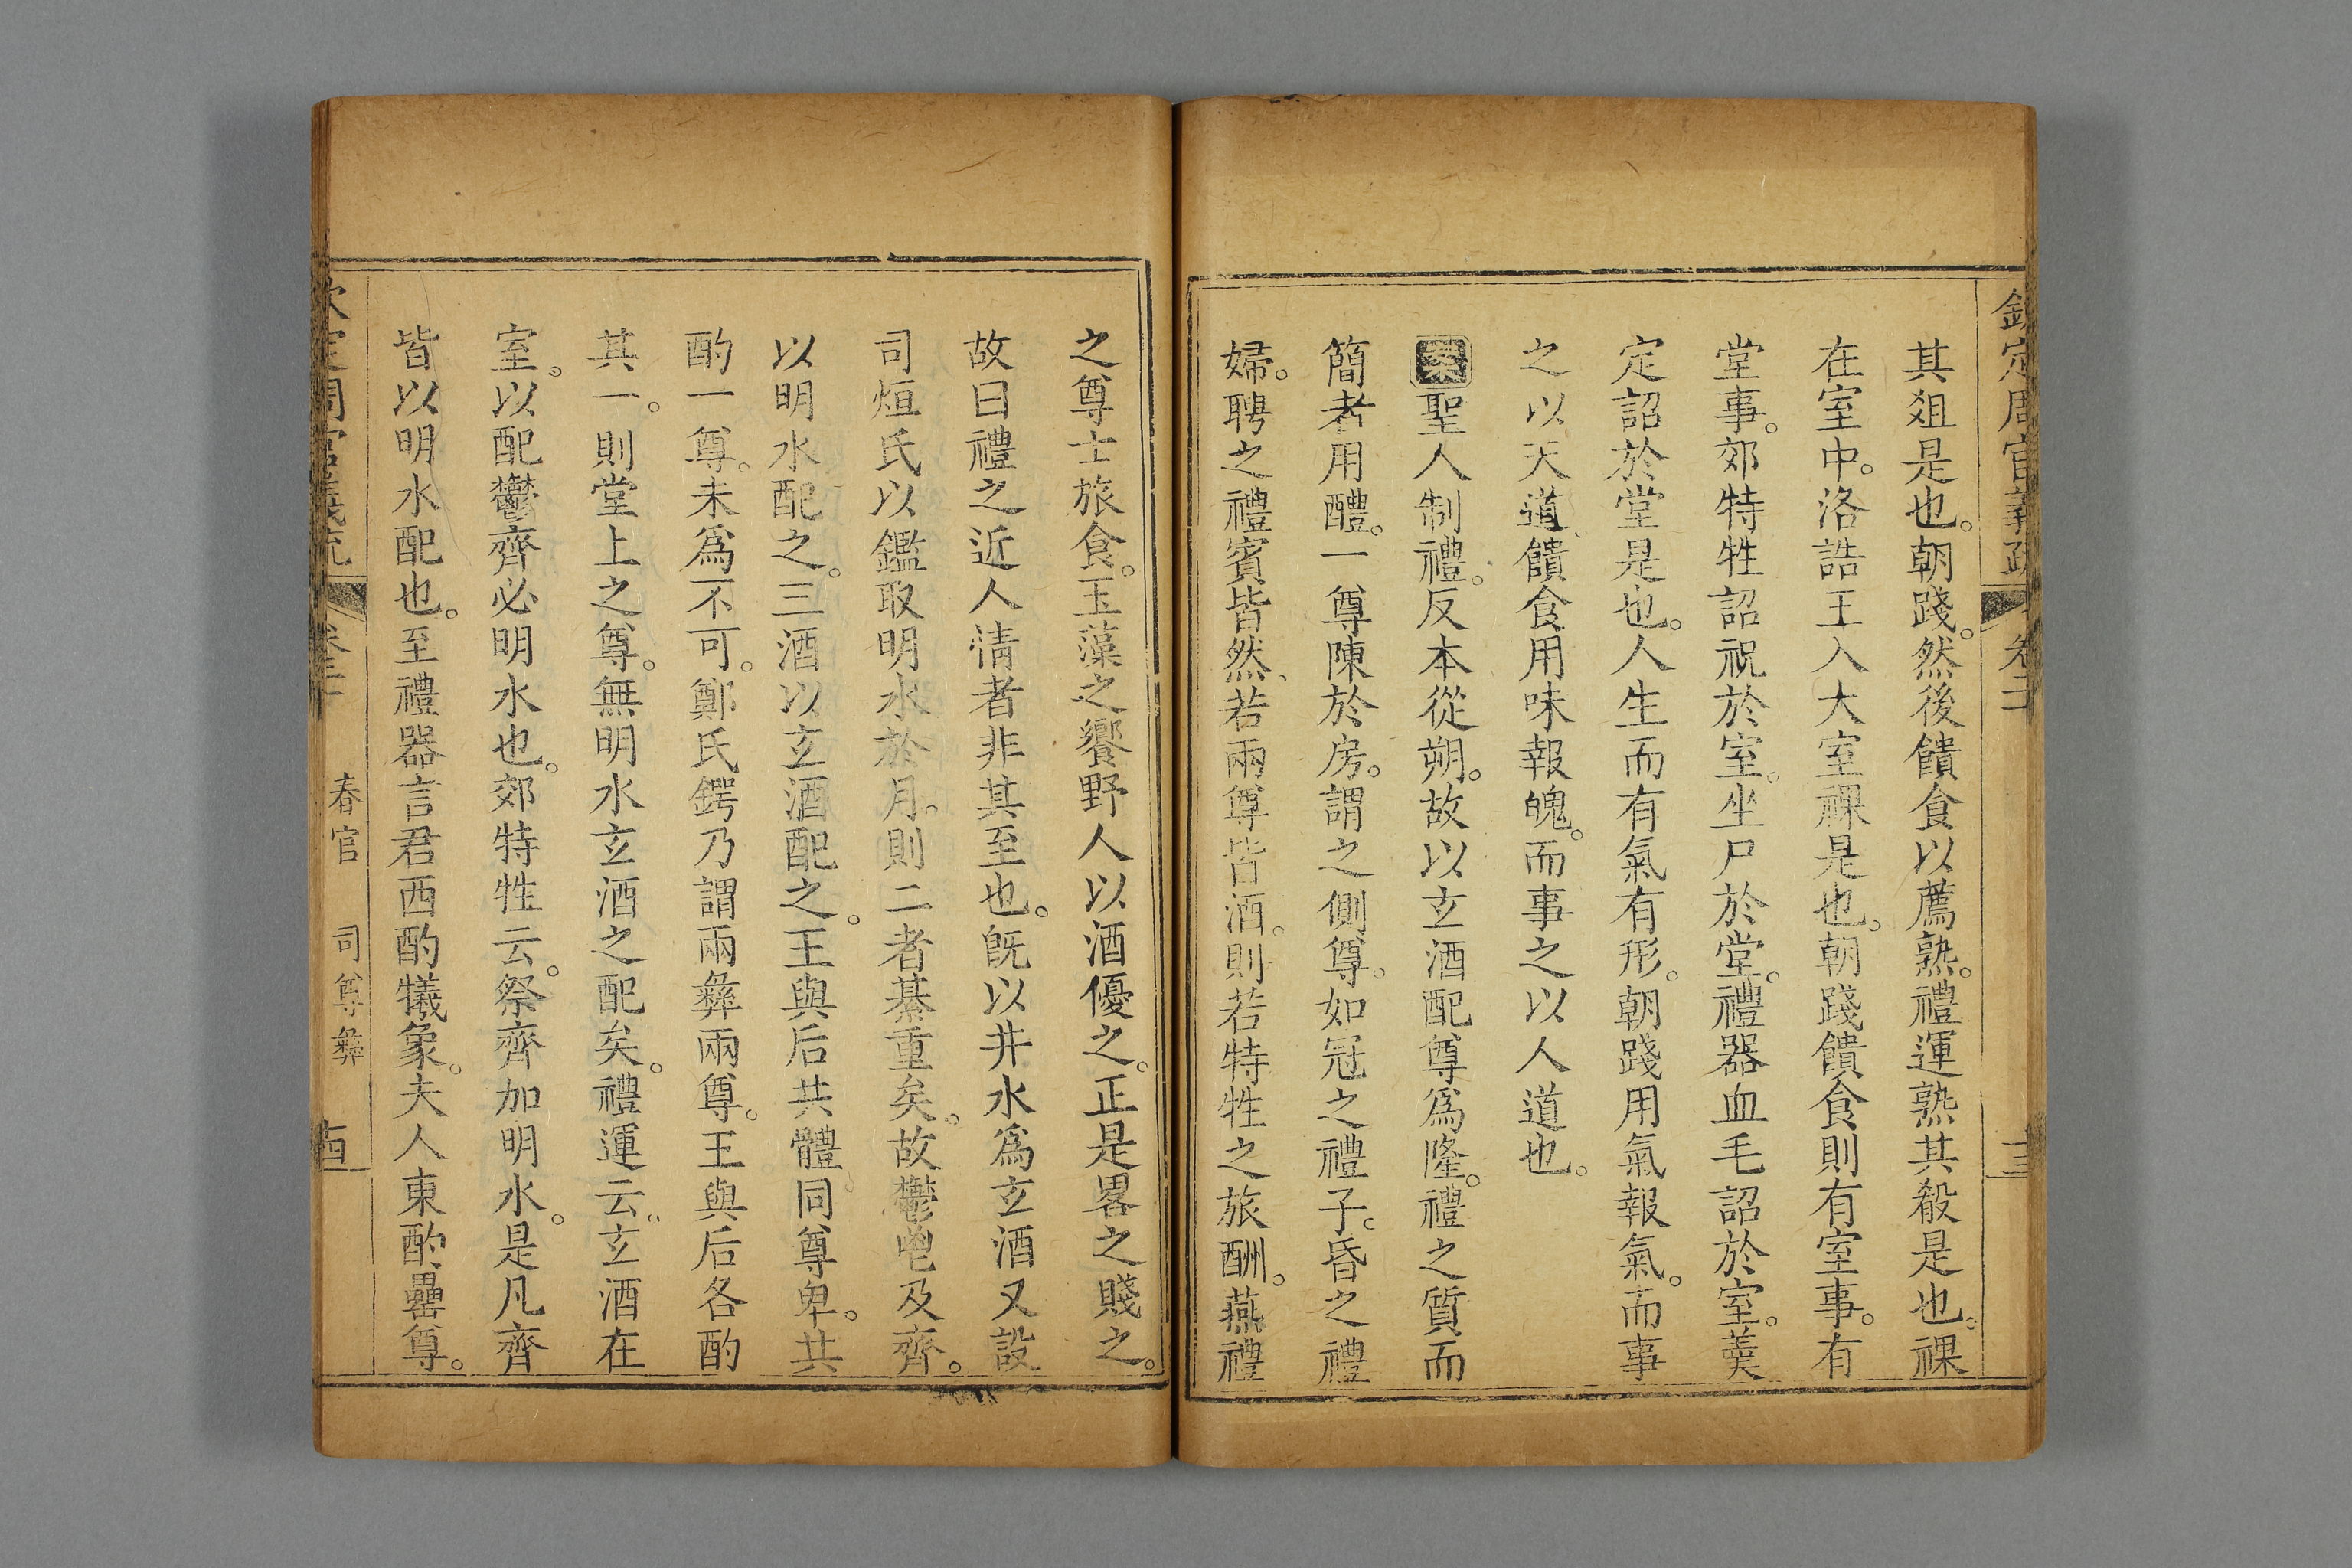 欽定周官義疏 卷二十 十三
其俎是也。朝踐。然後饋食以薦熟。禮運熟其殽是也。祼
在室中。洛誥王入大室祼是也。朝踐饋食則有室事。有
堂事。郊特牲詔祝於室。坐尸於堂。禮器血毛詔於室。羹
定詔於堂是也。人生而有氣有形。朝踐用氣報氣。而事
之以天道。饋食用味報魄。而事之以人道也。
案聖人制禮。反本從朔。故以玄酒配尊爲隆。禮之質而
簡者用醴。一尊陳於房。謂之側尊。如冠之禮子。昏之禮
婦。聘之禮賓皆然。若兩尊皆酒。則若特牲之旅酬。燕禮
之尊士旅食。玉藻之饗野人以酒優之。正是畧之賤之。
故曰禮之近人情者非其至也。旣以井水爲玄酒又設
司烜氏以鑑取明水於月。則二者綦重矣。故鬱鬯及齊。
以明水配之。三酒以玄酒配之。王與后共體同尊卑。共
酌一尊。未爲不可。鄭氏鍔乃謂兩彝兩尊。王與后各酌
其一。則堂上之尊。無明水玄酒之配矣。禮運云。玄酒在
室。以配鬱齊必明水也。郊特牲云。祭齊加明水。是凡齊
皆以明水配也。至禮器言君西酌犧象。夫人東酌罍尊。
欽定周官義疏 卷二十 春官 司尊彝